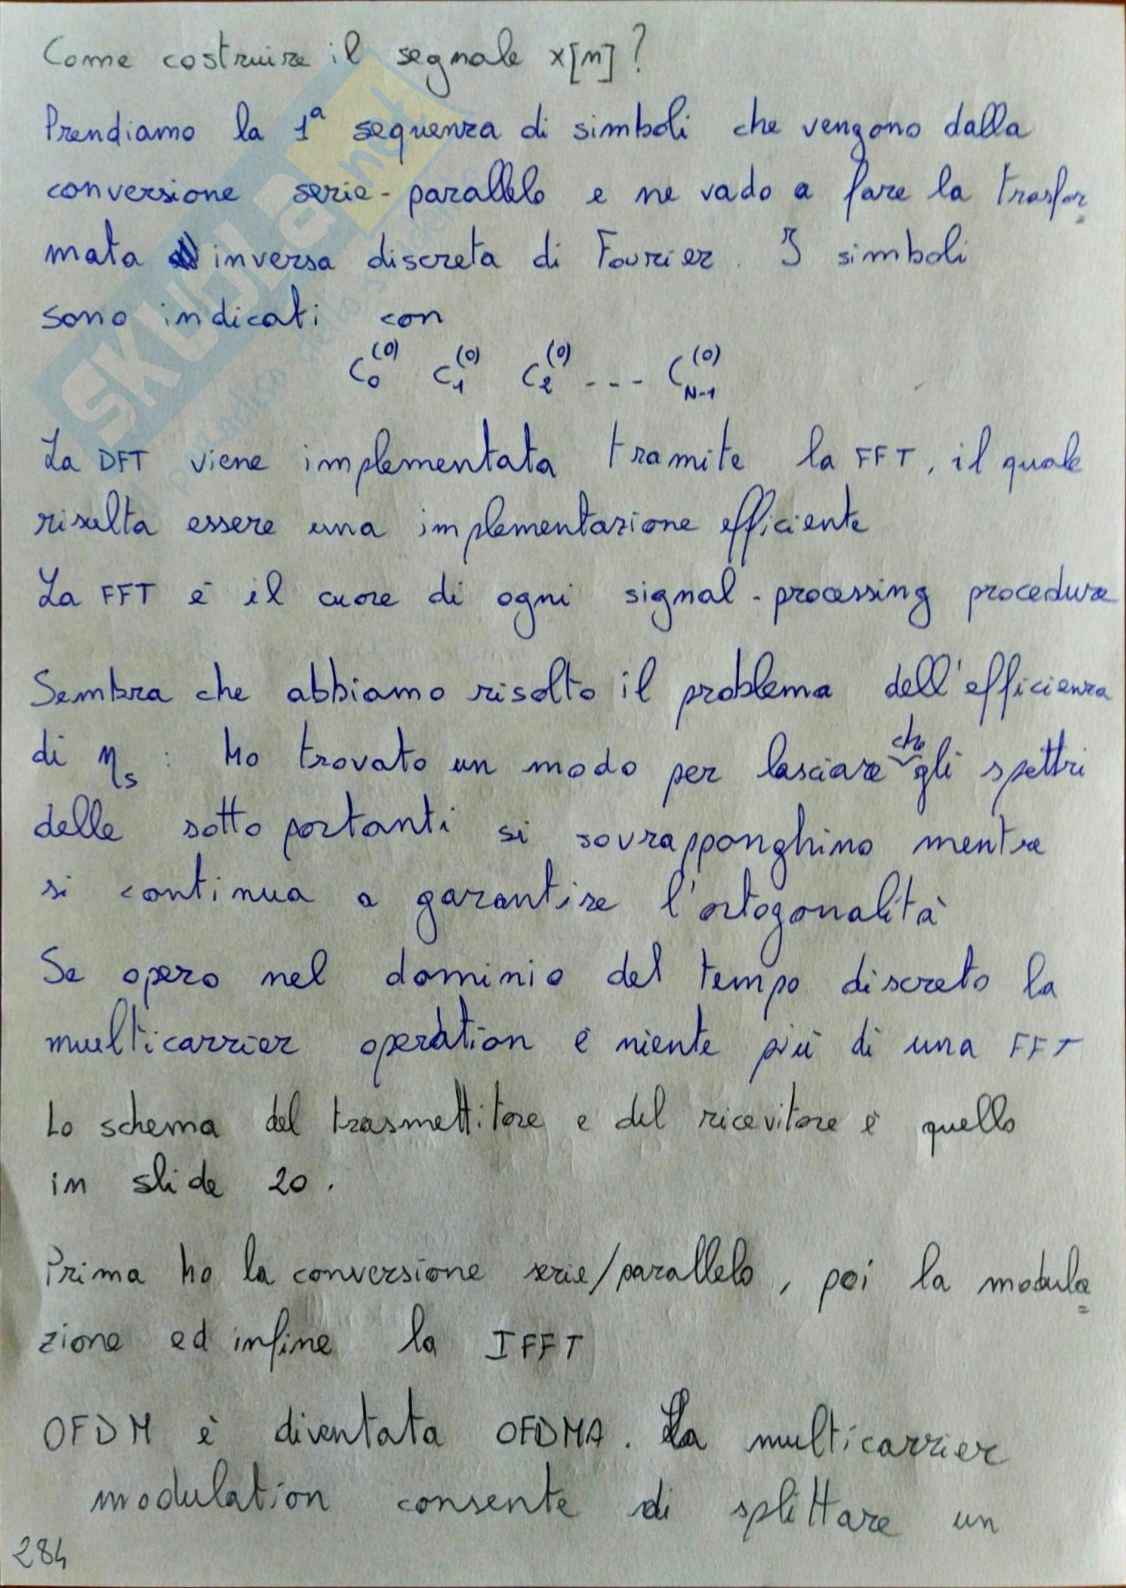 Come costruire il segnale x[n]?
Prendiamo la 1ª sequenza di simboli che vengono dalla
conversione serie-parallelo e ne vado a fare la trasfor
mata inversa discreta di Fourier. I simboli
sono indicati con
C₀⁽⁰⁾ C₁⁽⁰⁾ C₂⁽⁰⁾ --- C_{N-1}⁽⁰⁾
La DFT viene implementata tramite la FFT, il quale
risulta essere una implementazione efficiente
La FFT è il cuore di ogni signal-processing procedure
Sembra che abbiamo risolto il problema dell'efficienza
di ηs: ho trovato un modo per lasciare che gli spettri
delle sotto portanti si sovrapponghino mentre
si continua a garantire l'ortogonalità
Se opero nel dominio del tempo discreto la
multicarrier operation è niente più di una FFT
Lo schema del trasmettitore e del ricevitore è quello
in slide 20.
Prima ho la conversione serie/parallelo, poi la modula
zione ed infine la IFFT
OFDM è diventata OFDMA. La multicarrier
modulation consente di splittare un
284
SKUOLA.net